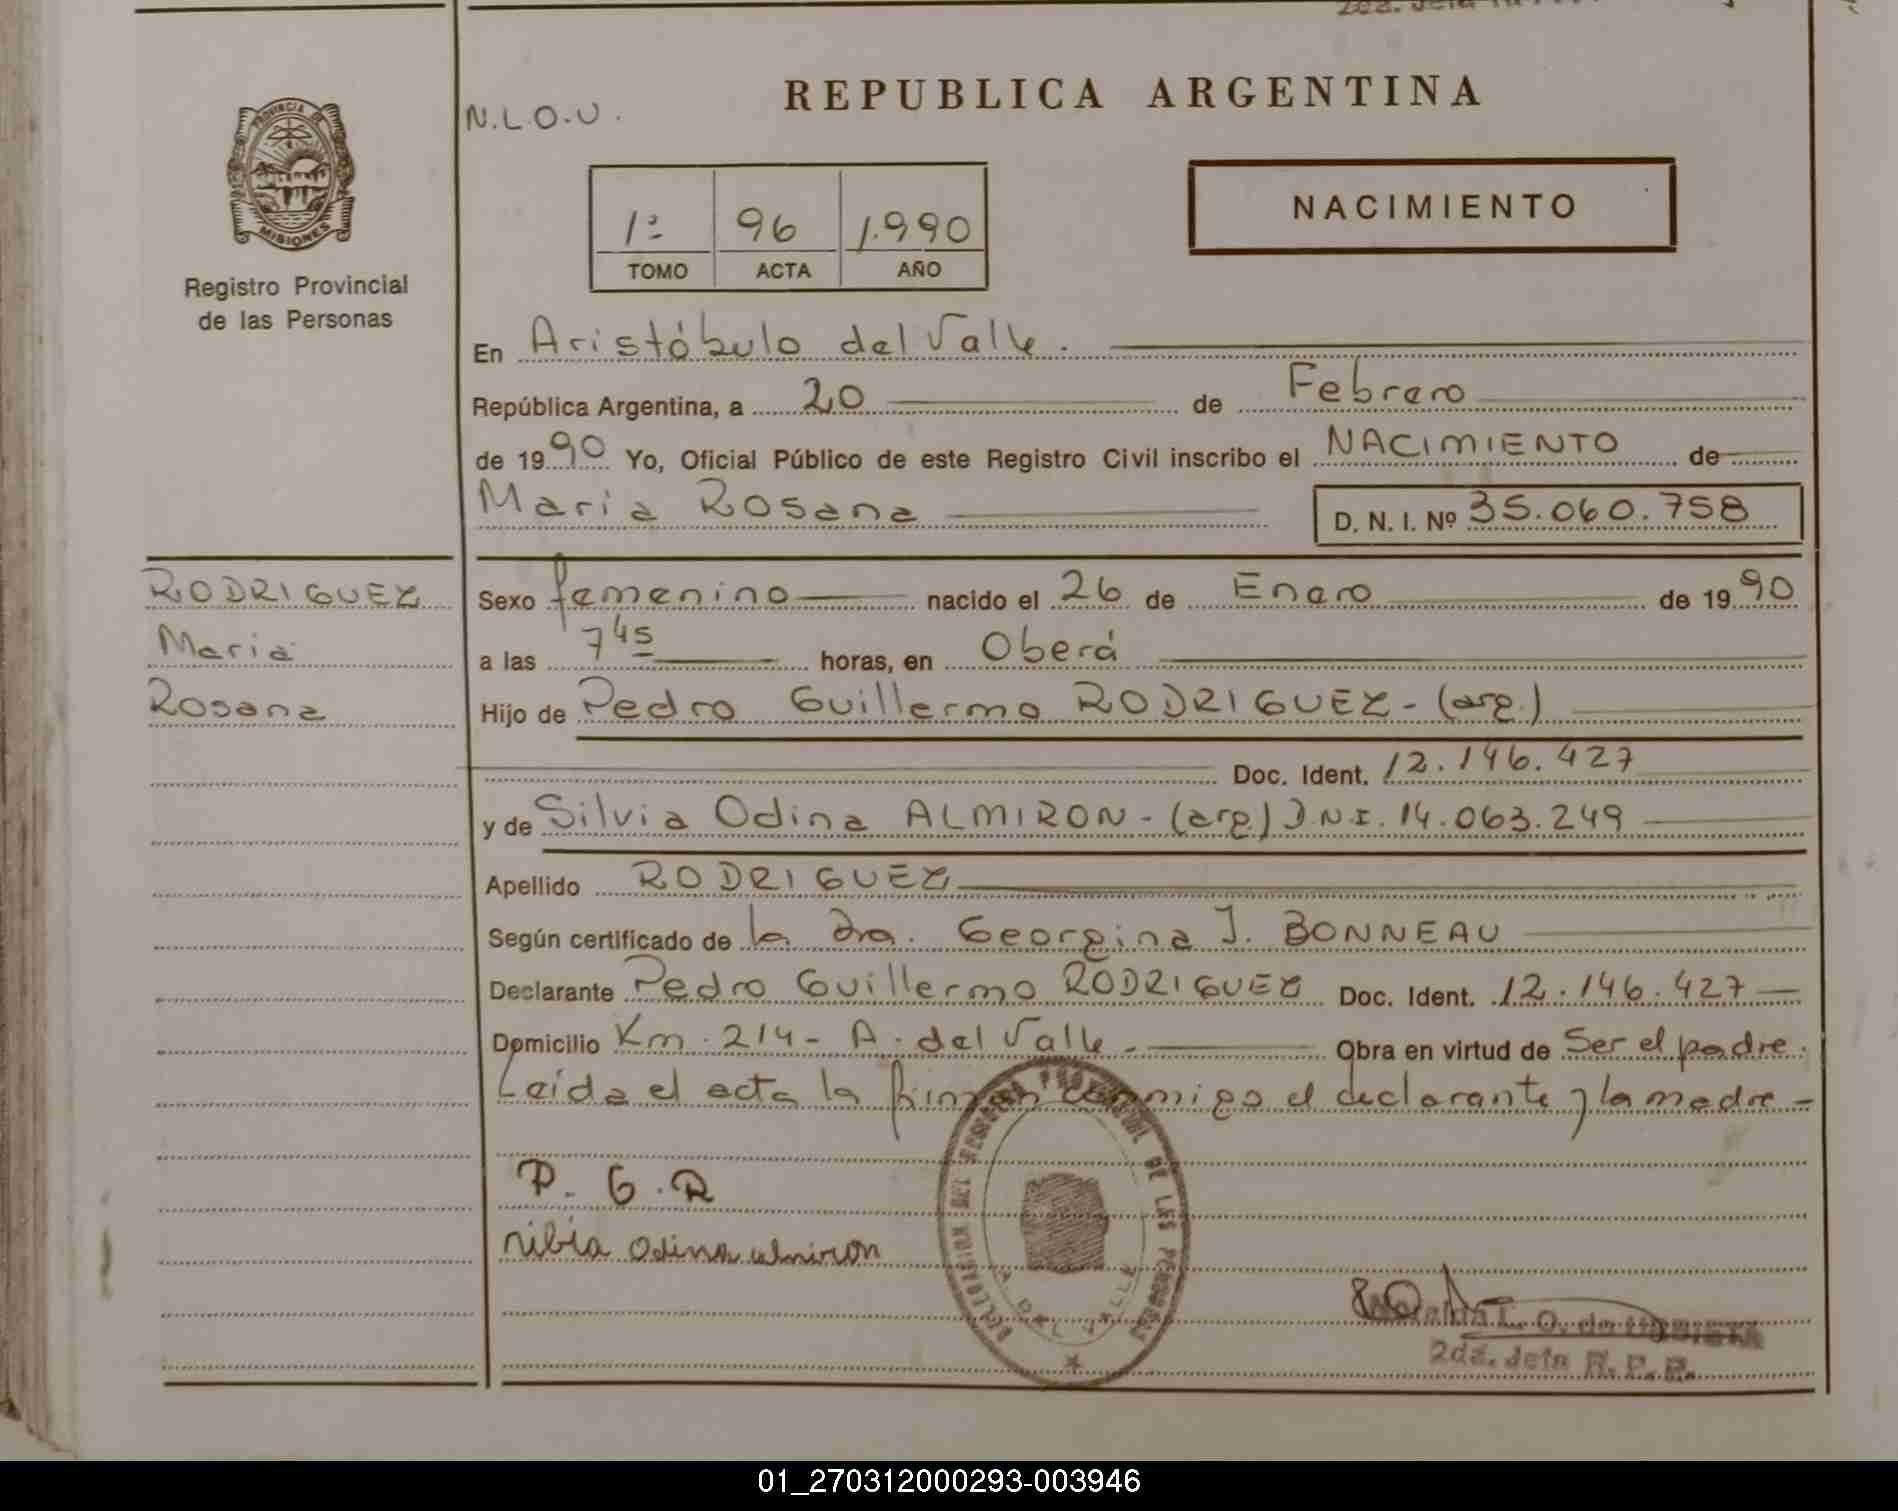 PROVINCIA DE
MISIONES
Registro Provincial
de las Personas
N.L.O.U.
REPUBLICA ARGENTINA
1º 96 1.990
TOMO ACTA AÑO
NACIMIENTO
En Aristóbulo del Valle.
República Argentina, a 20 de Febrero
de 1990 Yo, Oficial Público de este Registro Civil inscribo el NACIMIENTO de
Maria Rosana D. N. I. Nº 35.060.758
RODRIGUEZ
Maria
Rosana
Sexo femenino nacido el 26 de Enero de 1990
a las 7 45 horas, en Oberá
Hijo de Pedro Guillermo RODRIGUEZ - (arg.)
Doc. Ident. 12.146.427
y de Silvia Odina ALMIRON - (arg) D.N.I. 14.063.249
Apellido RODRIGUEZ
Según certificado de la Dra. Georgina J. BONNEAU
Declarante Pedro Guillermo RODRIGUEZ Doc. Ident. 12.146.427
Domicilio Km. 214 - A. del Valle - Obra en virtud de Ser el padre.
Leida el acta la firman conmigo el declarante y la madre -
P. G. R
Odina almiron
DELEGACION DEL REGISTRO PROVINCIAL DE LAS PERSONAS
A. DEL VALLE
L. O. de
2da. Jefa R. P. P.
01_270312000293-003946